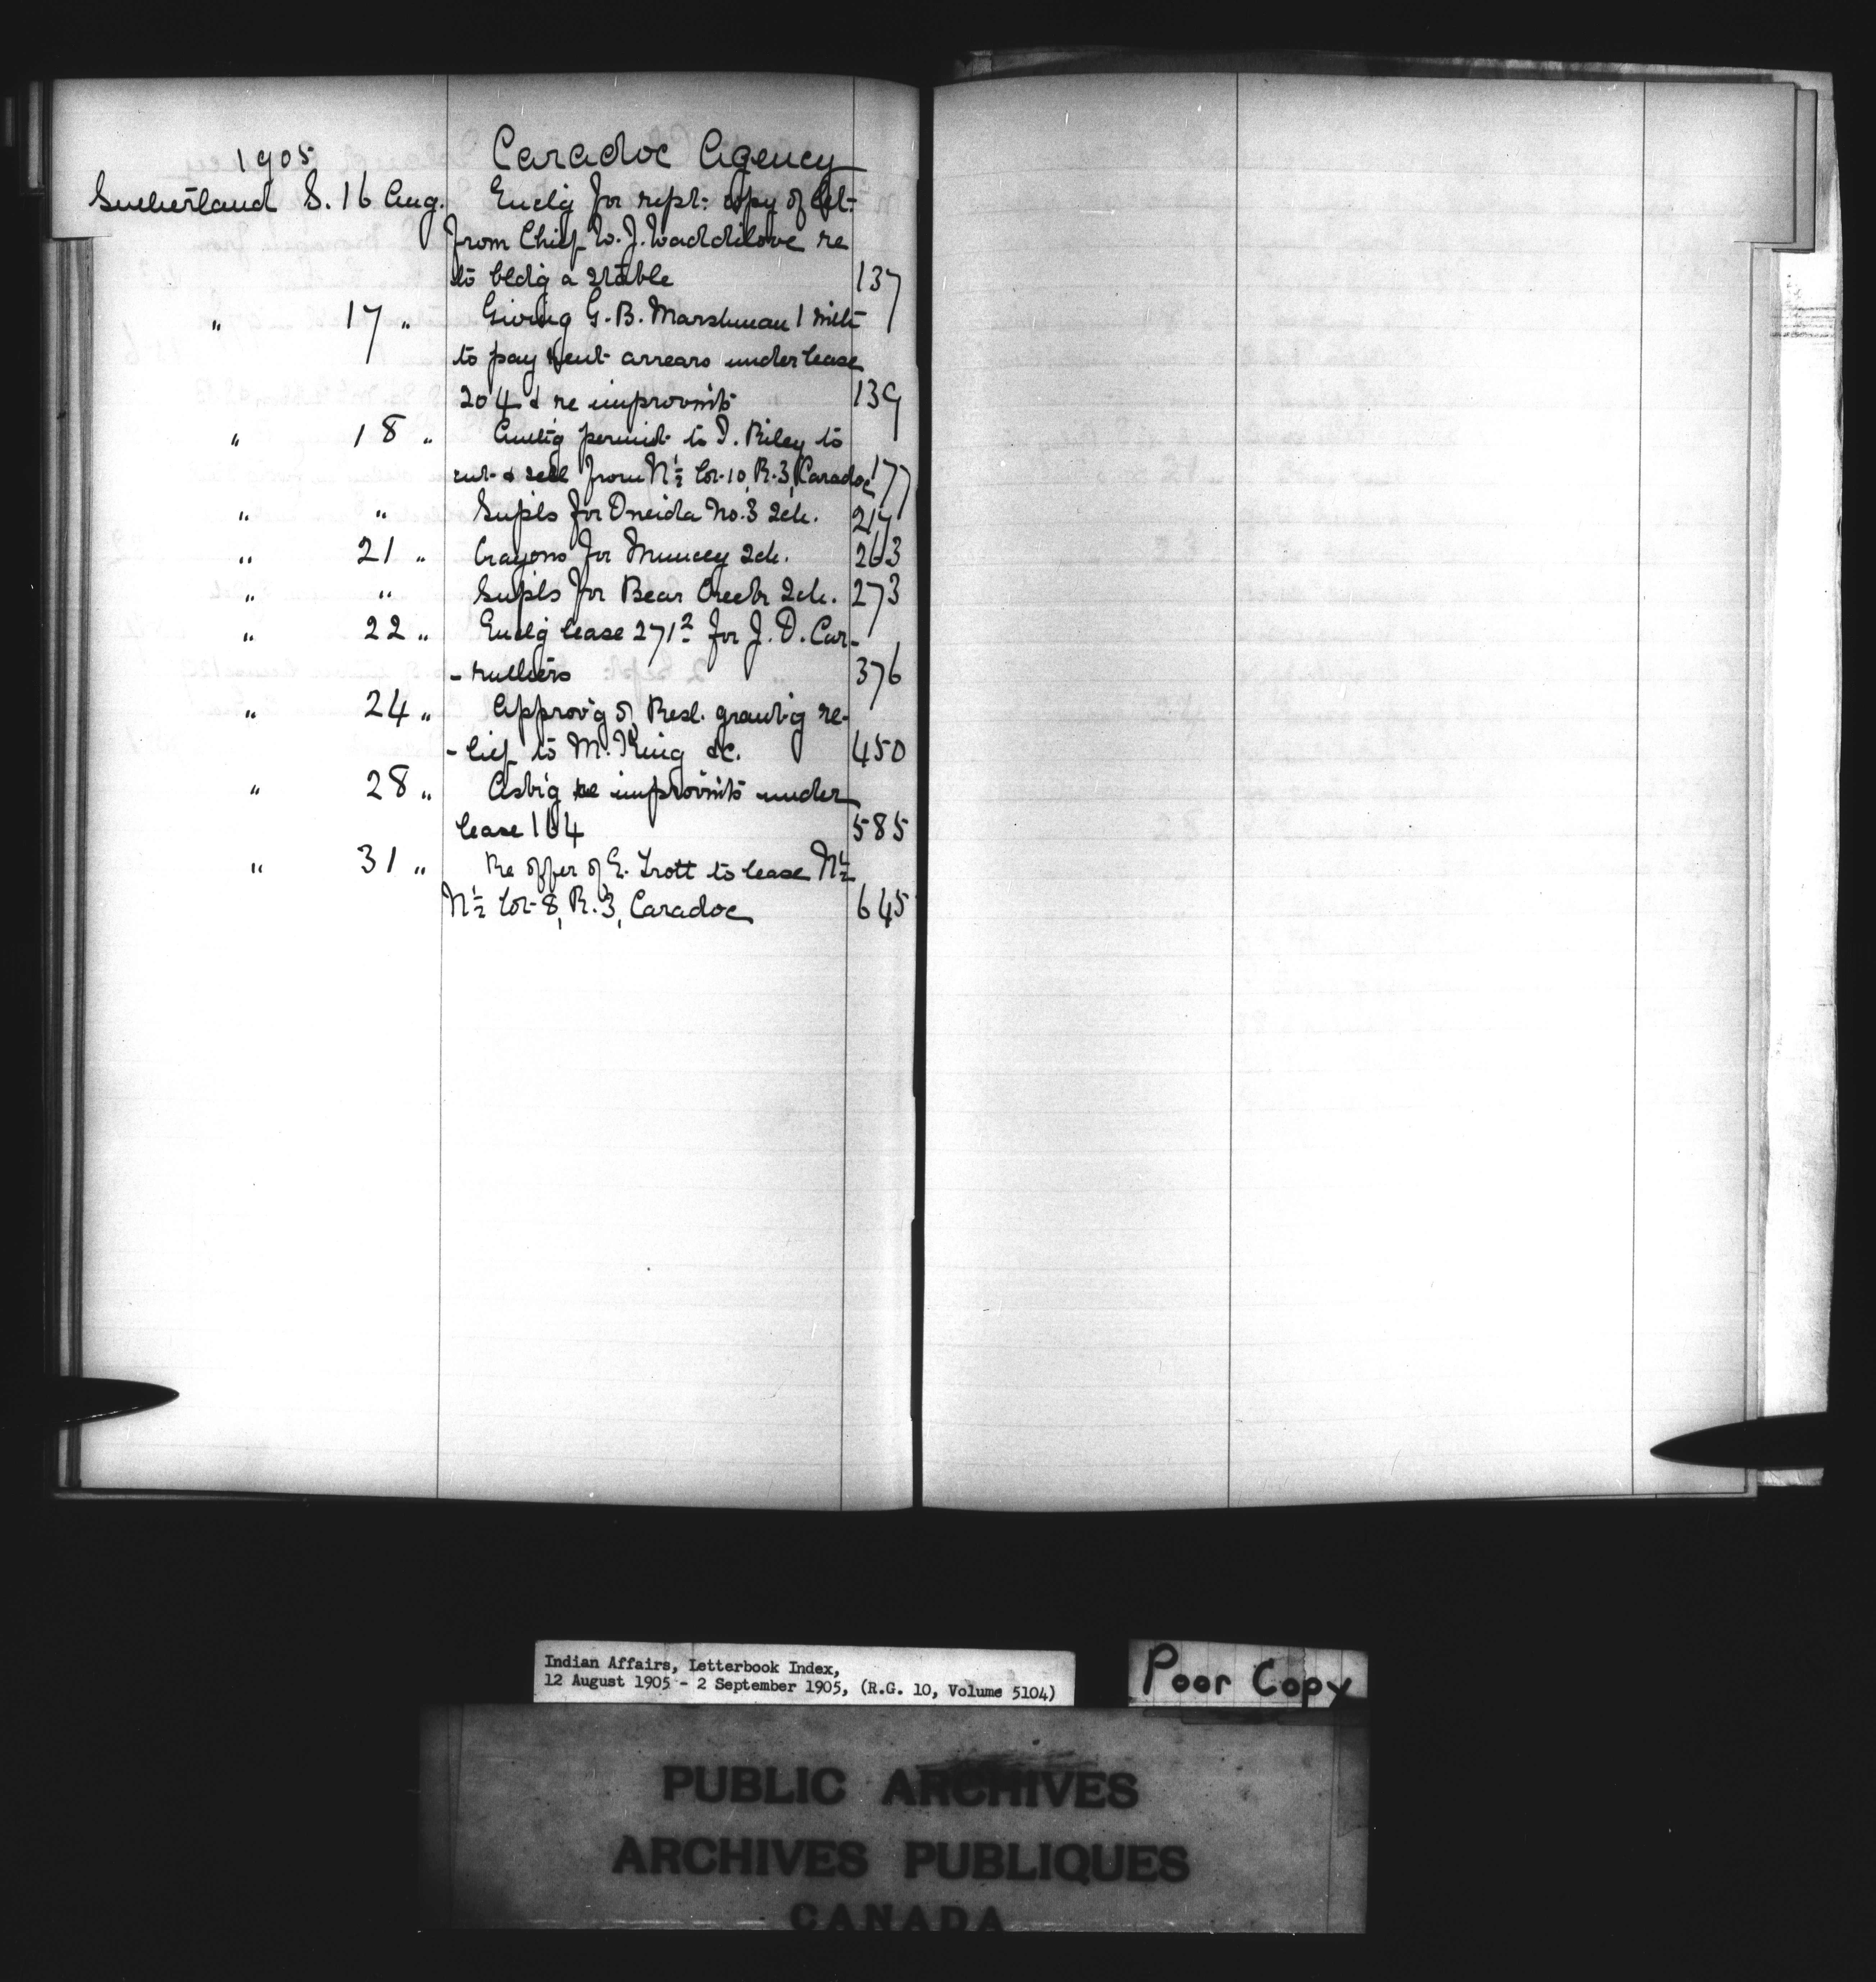 1905 Caradoc Agency
Sutherland S. 16 Aug. Enclg for rept: copy of let:
from Chief W. J. Waddilove re
to bldg a stable 137
" 17 " Giving G. B. Marshman 1 mth
to pay rent arrears under lease
204 & re improvmts 139
" 18 " Authg permit to I. Riley to
cut & sell from N½ Lot 10, R. 3, Caradoc 177
" " Supls for Oneida No. 3 Sch. 217
" 21 " Crayons for Muncey Sch. 263
" " Supls for Bear Creek Sch. 273
" 22 " Enclg lease 271² for J. D. Car-
-ruthers 376
" 24 " Approv'g of Resl. grant'g re-
-lief to M. King &c. 450
" 28 " Ask'g re improvmts under
lease 164 585
" 31 " Re offer of E. Trott to lease N½
N½ Lot 8, R. 3, Caradoc 645
Indian Affairs, Letterbook Index,
12 August 1905 - 2 September 1905, (R.G. 10, Volume 5104)
Poor Copy
PUBLIC ARCHIVES
ARCHIVES PUBLIQUES
CANADA